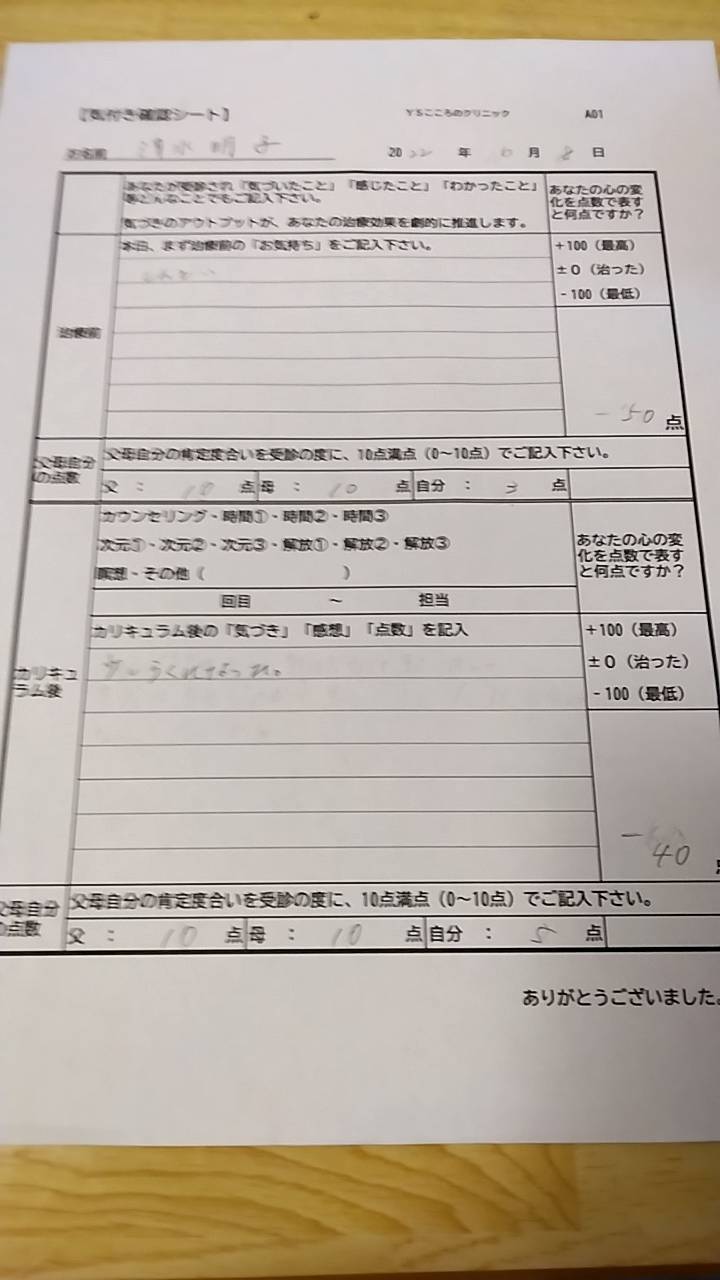 【気付き確認シート】 YSこころのクリニック A01
お名前 清水明子 2022年 月8日
あなたが受診され「気づいたこと」「感じたこと」「わかったこと」
等どんなことでもご記入下さい。
気づきのアウトプットが、あなたの治療効果を劇的に推進します。
あなたの心の変
化を点数で表す
と何点ですか？
治療前
本日、まず治療前の「お気持ち」をご記入下さい。
+100（最高）
±0（治った）
-100（最低）
-50点
父母自分
の点数
父母自分の肯定度合いを受診の度に、10点満点（0～10点）でご記入下さい。
父：10点 母：10点 自分：3点
カリキュ
ラム後
カウンセリング・時間①・時間②・時間③
次元①・次元②・次元③・解放①・解放②・解放③
瞑想・その他（ ）
回目 ～ 担当
あなたの心の変
化を点数で表す
と何点ですか？
カリキュラム後の「気づき」「感想」「点数」を記入
+100（最高）
±0（治った）
-100（最低）
-40点
父母自分
の点数
父母自分の肯定度合いを受診の度に、10点満点（0～10点）でご記入下さい。
父：10点 母：10点 自分：5点
ありがとうございました。